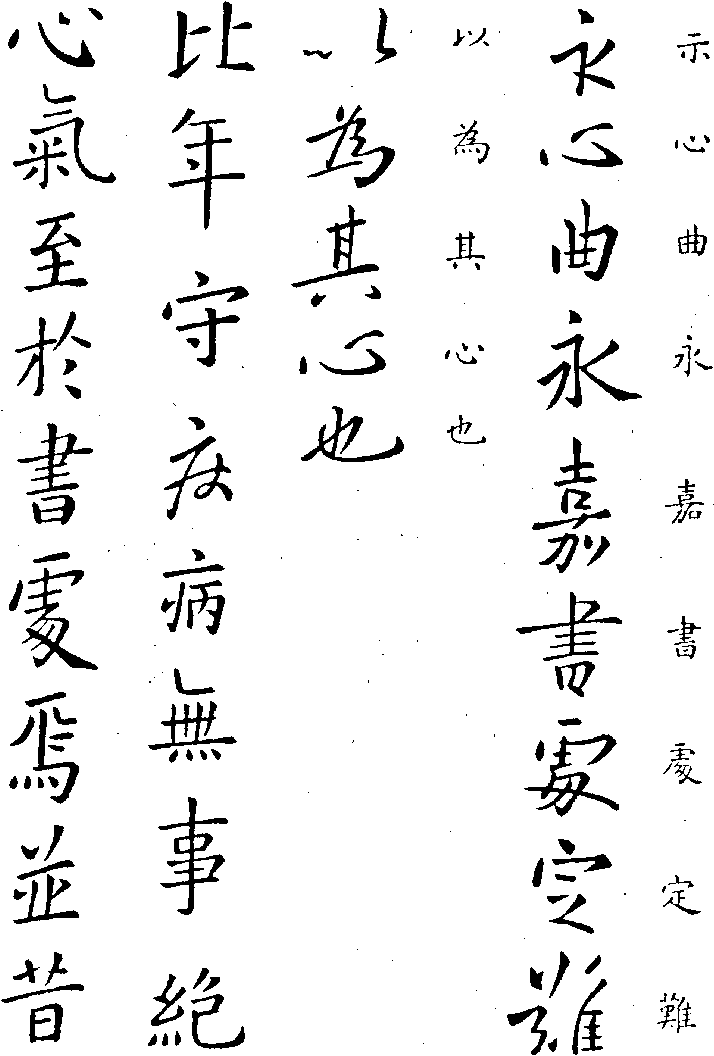 示心曲永嘉書處定難
示心曲永嘉書處定難
以為其心也
以為其心也
比年守疾病無事絕
心氣至於書處焉並昔